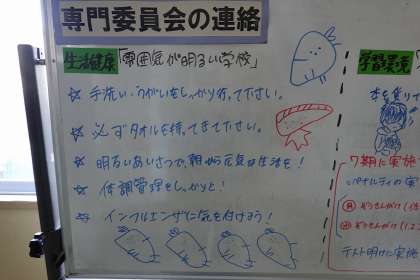 専門委員会の連絡
生活健康 「雰囲気が明るい学校」
☆ 手洗い・うがいをしっかり行って下さい。
☆ 必ずタオルを持ってきて下さい。
☆ 明るいあいさつで、朝から元気な生活を!
☆ 体調管理をしっかりと!
☆ インフルエンザに気を付けよう!
学習環境
本を借りて
7期に実施
テスト明けに実施